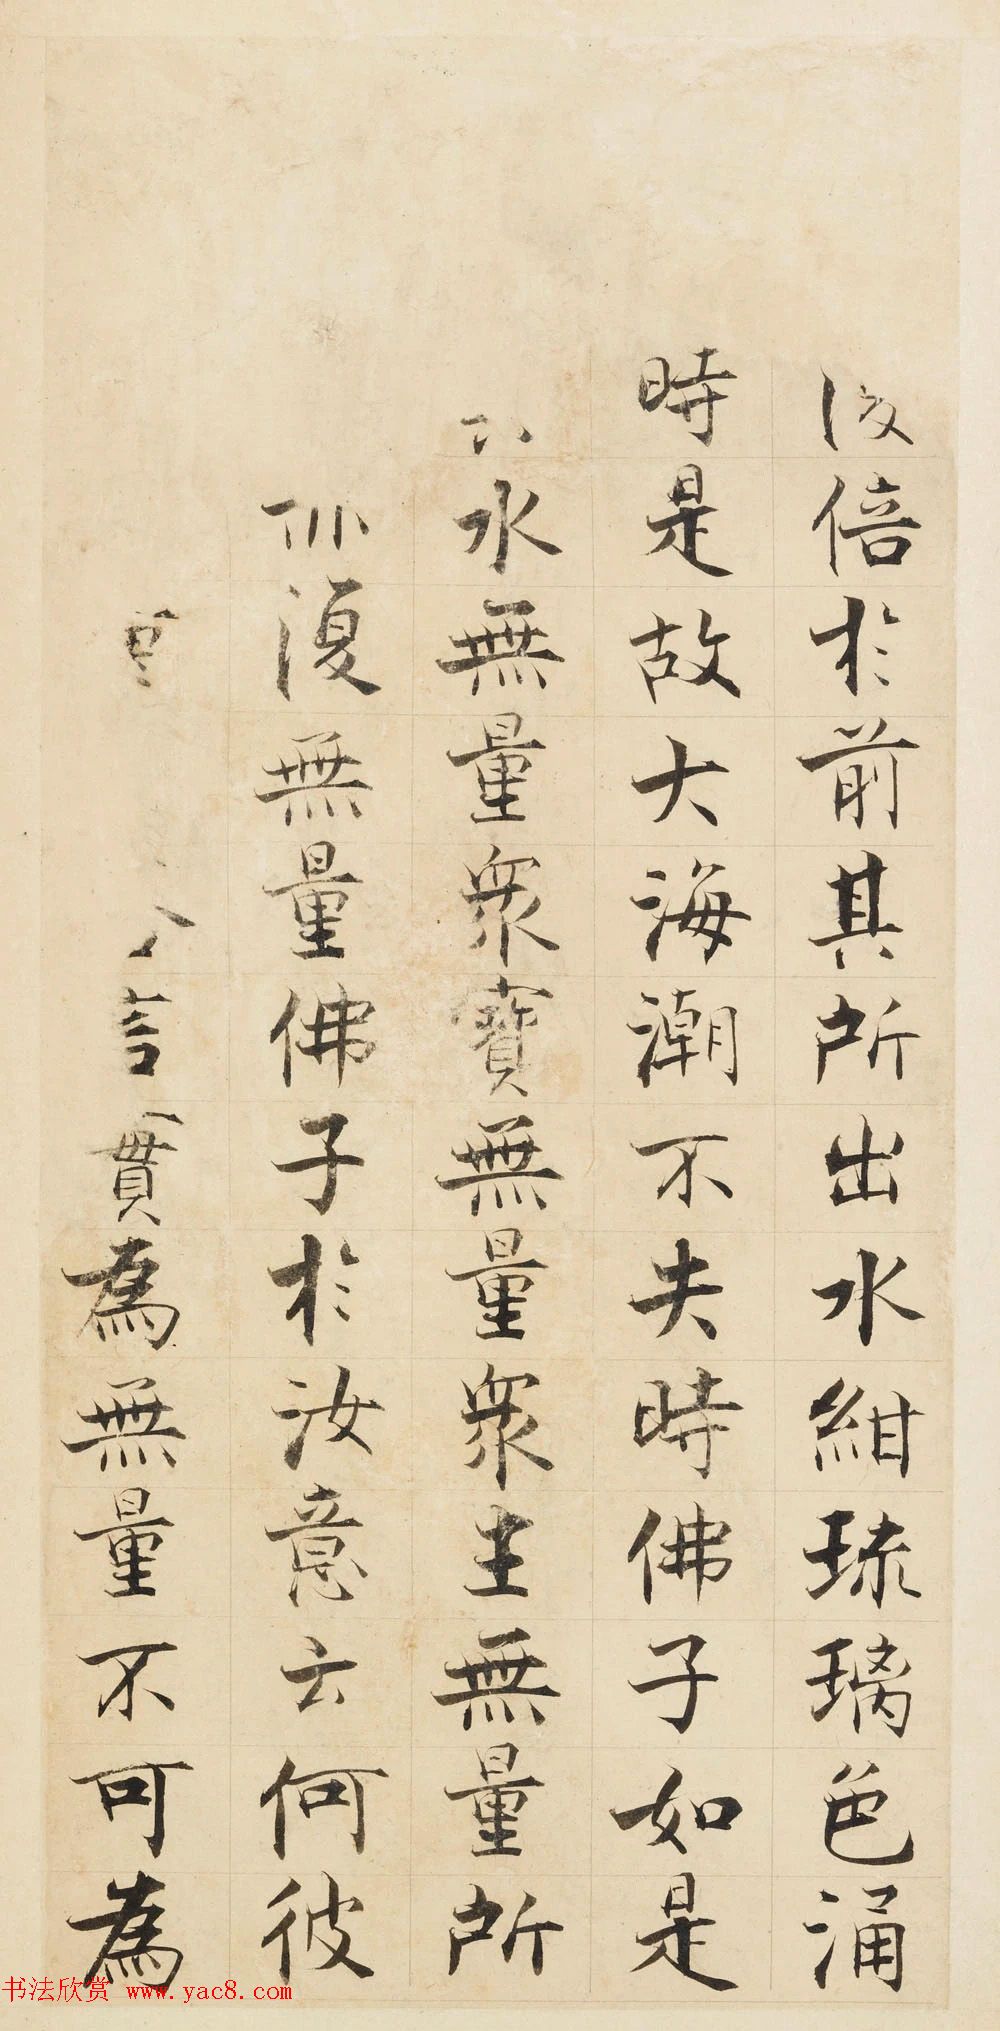 倍於前其所出水紺琉璃色涌
時是故大海潮不失時佛子如是
水無量衆寶無量衆生無量所
復無量佛子於汝意云何彼
言實為無量不可為
书法欣赏 www.yac8.com